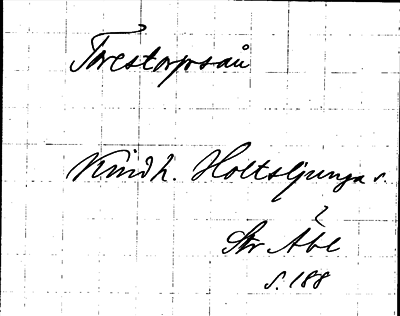 Torestorpsån
Kind h. Holtsljunga s.
?
Str Åbl
s. 188